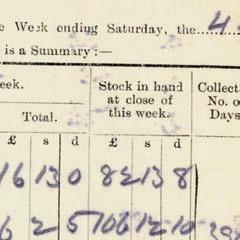 e Week ending Saturday, the 4
is a Summary:—
eek. Stock in hand Collect
at close of No. o
Total. this week. Days
£ s d £ s d
16 13 0 82 13 8
6 2 5 106 12 10